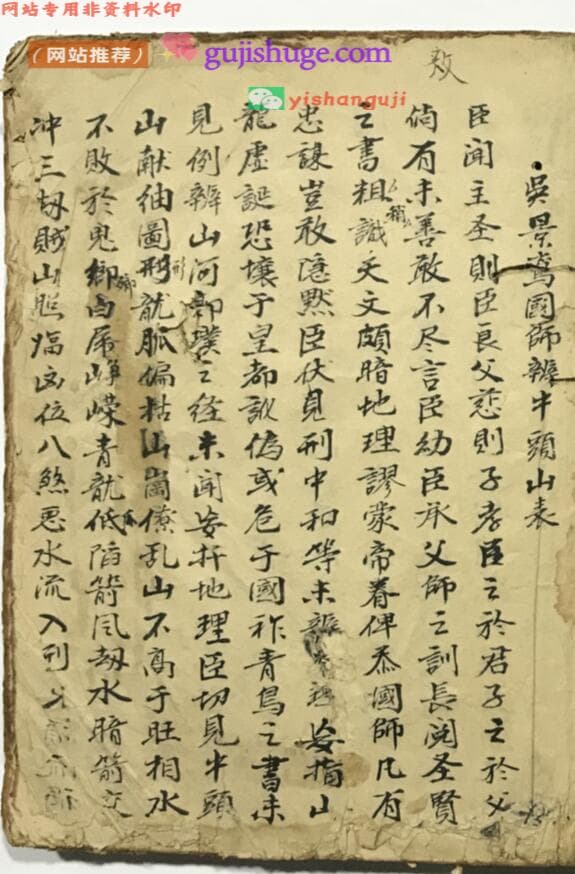 网站专用非资料水印
（网站推荐） gujishuge.com
yishanguji
吳景鸾國師辨牛頭山表
臣闻主圣则臣良父慈则子孝臣之於君子之於父
倘有未善敢不尽言臣幼臣承父師之訓長阅圣賢
之書粗識天文頗暗地理謬蒙帝眷俾忝國師凡有
忠謀岂敢隐默臣伏見刑中和等未辨妄指山
龍虚誕恐壤于皇都訛偽或危于國祚青烏之書未
見例辨山河郭璞之经未闻妄扦地理臣切見牛頭
山献紬圖形龍脈偏枯山崗僚乱山不高于旺相水
不敗於鬼鄉白虎峥嵘青龍低陷箭风劫水暗箭交
冲三刼賊山照临凶位八煞恶水流入刑